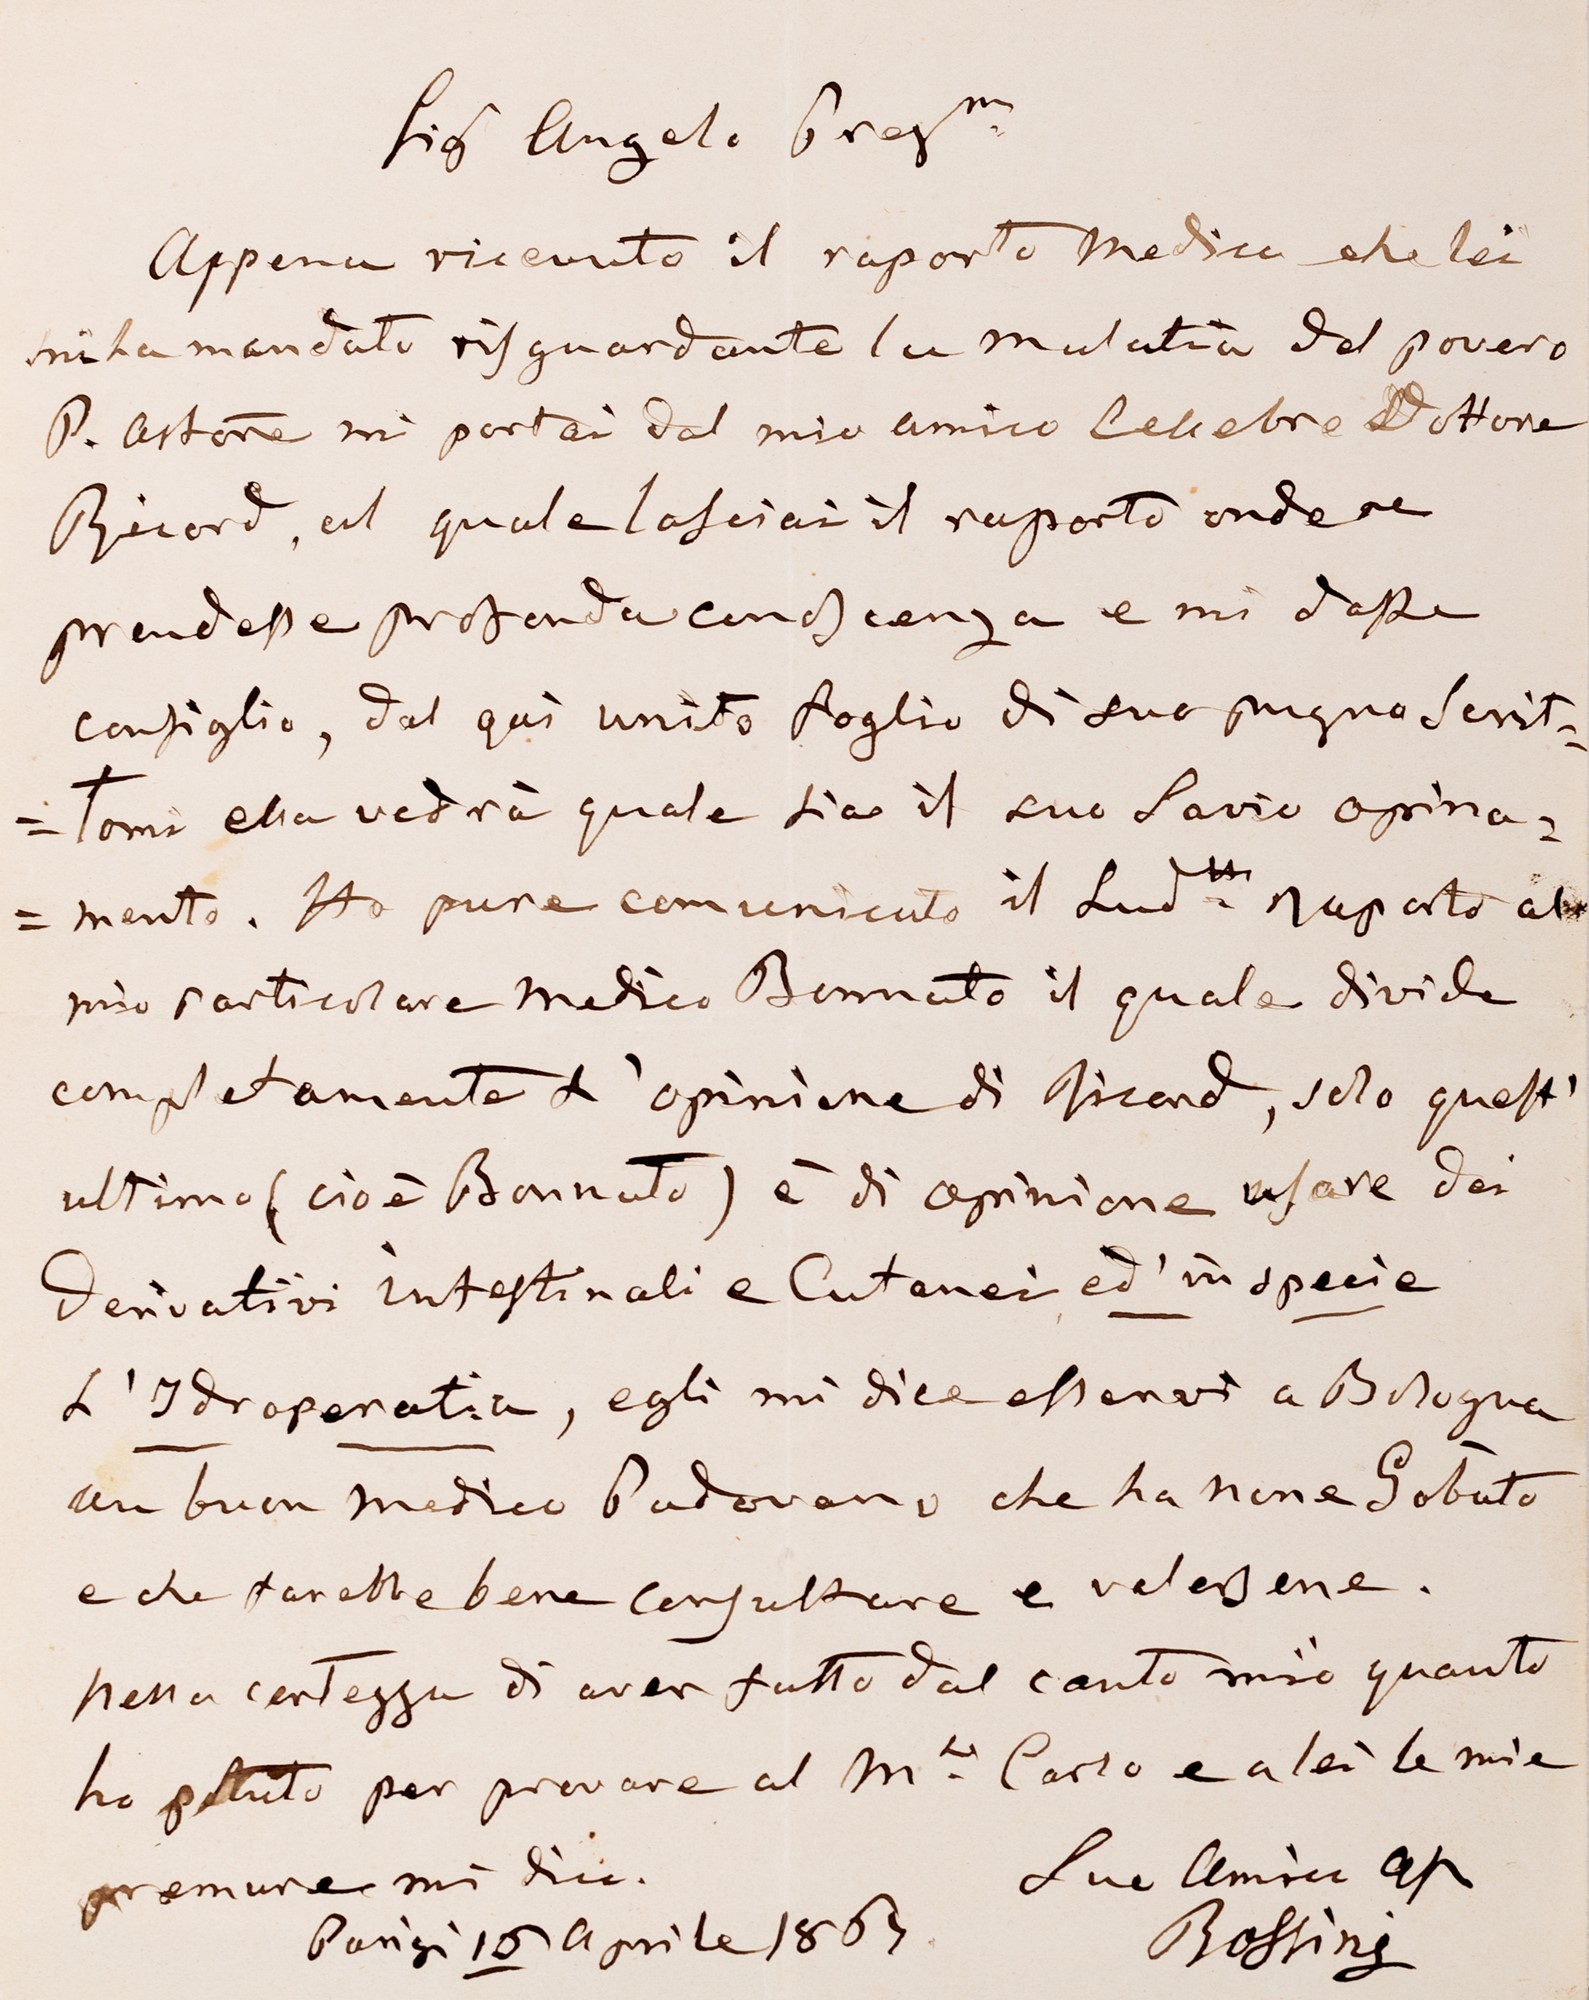 Sig Angelo Preg.m
Appena ricevuto il raporto Medico che lei
mi ha mandato risguardante la malatia del povero
P. Astore mi portai dal mio amico Cellebre Dottore
Ricord, al quale lasciai il raporto onde ne
prendesse profonda conoscienza e mi dasse
consiglio, dal quì unito foglio di suo pugno Scrit=
=tomi ella vedrà quale sia il suo Savio opina=
=mento. Ho pure comunicato il Sud.tto Raporto al
mio particolare Medico Bonnato il quale divide
completamente L'opinione di Ricord, solo quest'
ultimo (cioè Bonnato) è di opinione usare dei
Derivativi intestinali e Cutanei ed' in specie
L'Idroperatia, egli mi dice esservi a Bologna
un buon medico Padovano che ha nome Gobato
e che sarebbe bene consultare e valersene.
Nella certezza di aver fatto dal canto mio quanto
ho potuto per provare al M. Carlo e a lei le mie
premure mi dico.
Suo Amico af
Parigi 16 Aprile 1867
Rossini